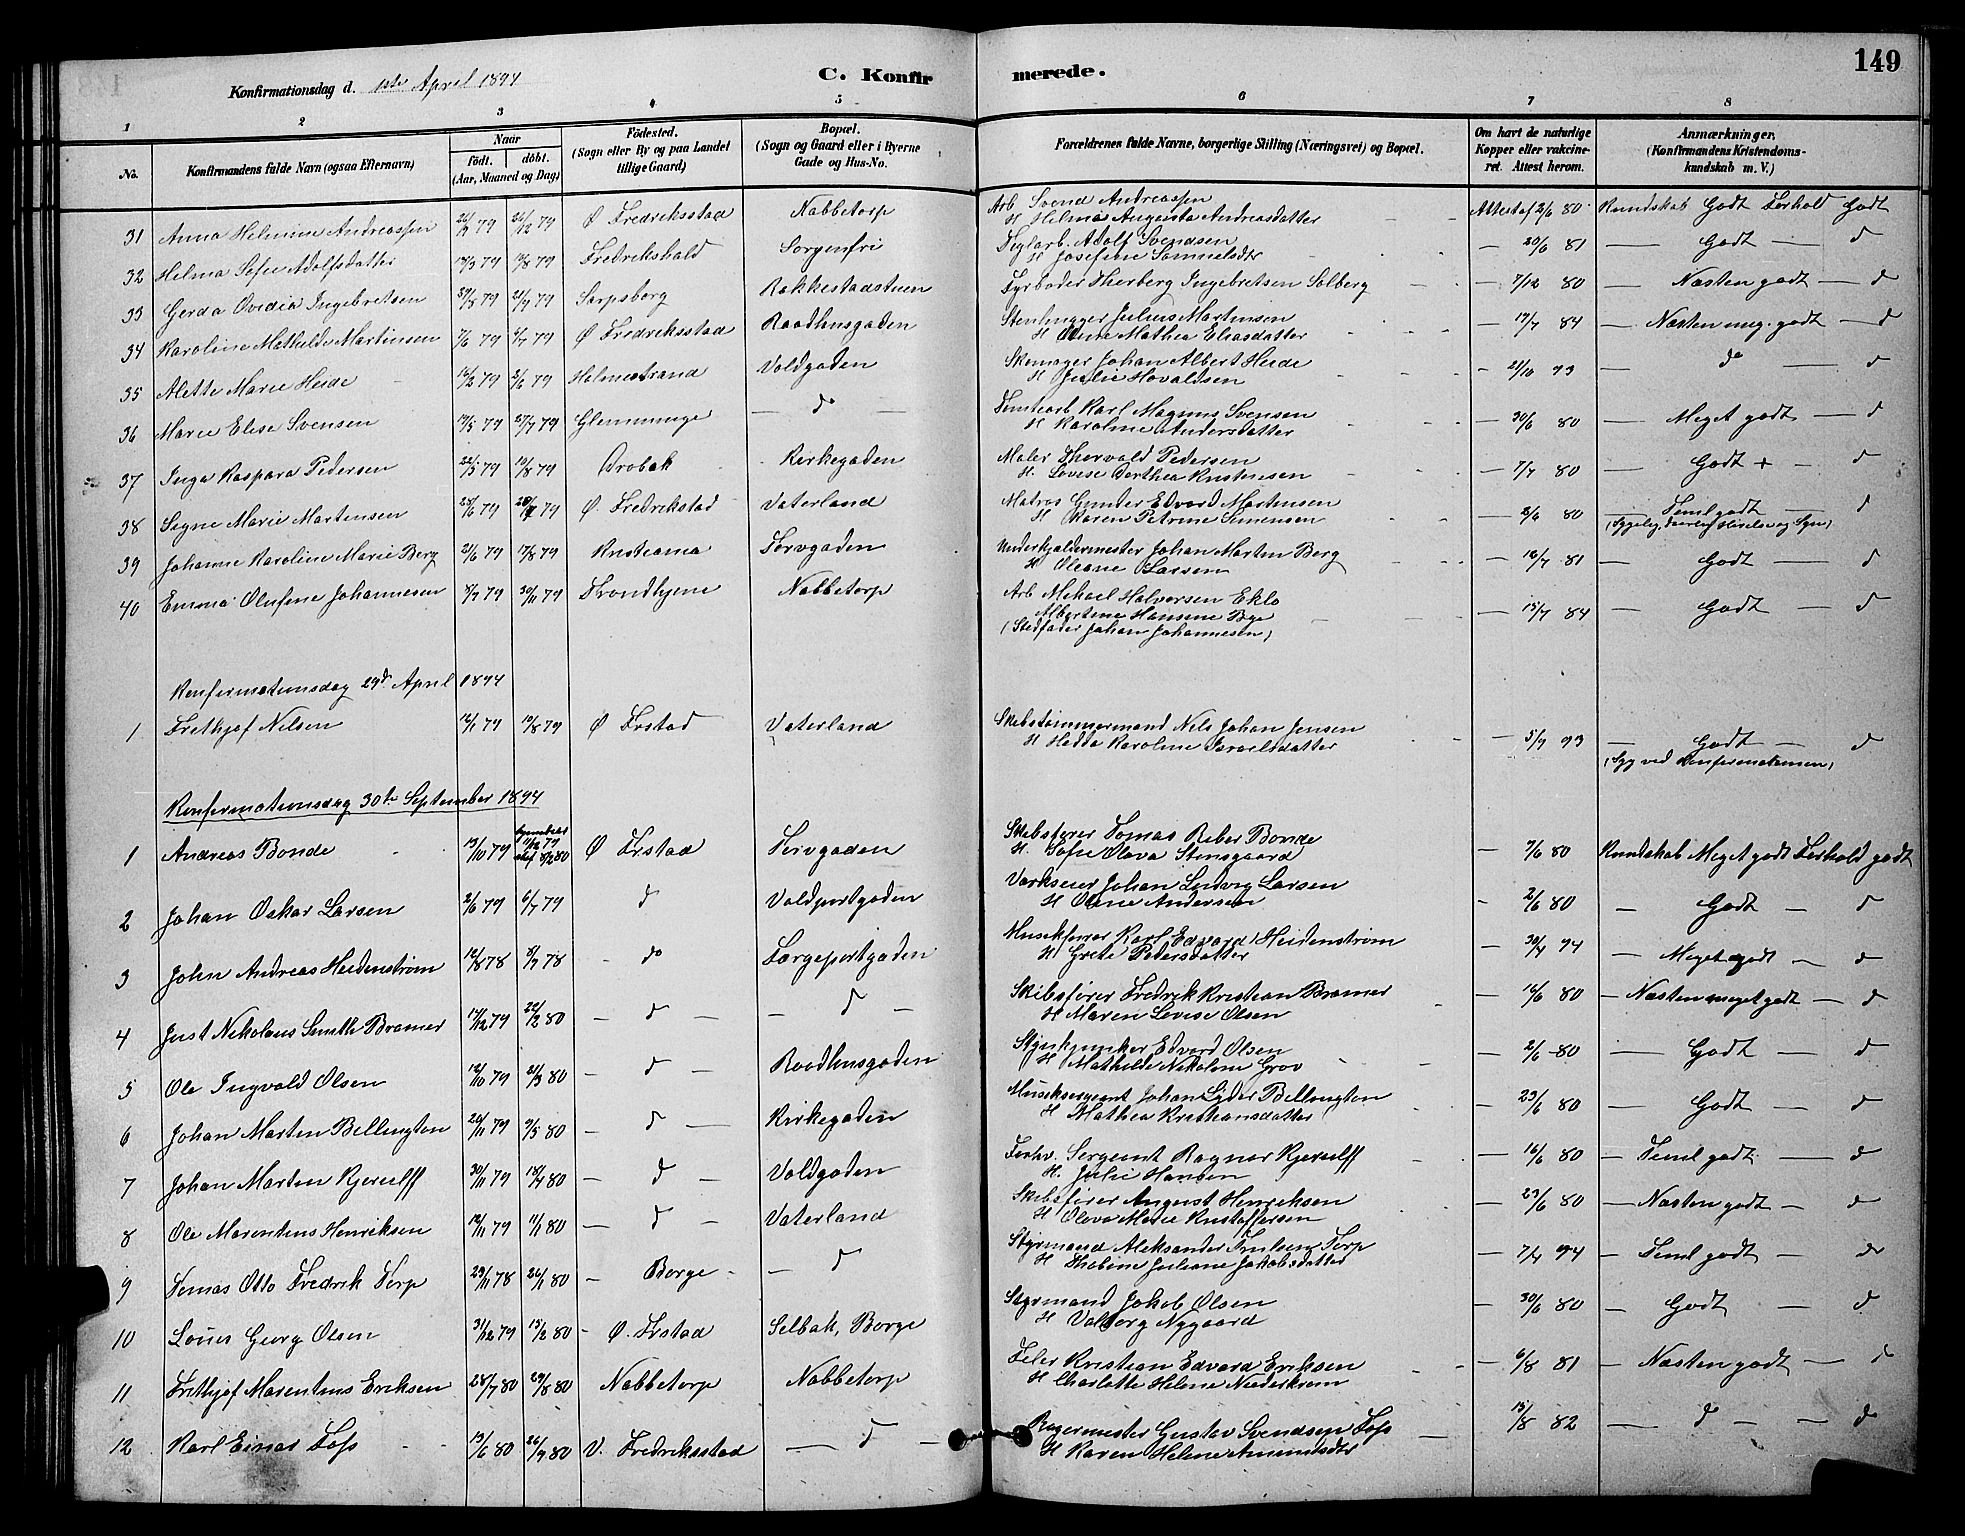 149
Konfirmationsdag d. 1ste April 1894
C. Konfirmerede.
1 2 3 4 5 6 7 8
No. Konfirmandens fulde Navn (ogsaa Efternavn) Naar födt. döbt. (Aar, Maaned og Dag) Födested. (Sogn eller By og paa Landet tillige Gaard) Bopæl. (Sogn og Gaard eller i Byerne Gade og Hus-No. Forældrenes fulde Navne, borgerlige Stilling (Næringsvei) og Bopæl. Om havt de naturlige Kopper eller vakcineret. Attest herom. Anmærkninger. (Konfirmandens Kristendomskundskab m. V.)
31 Anna Helmine Andreassen 79 79 Ø Fredriksstad Nabbetorp Arb Svend Andreassen Attestaf 2/6 80 Kundskab Godt Forhold Godt
H Helma Augusta Andreasdatter
32 Helma Sofie Adolfsdatter 79 79 Fredrikshald Sorgenfri Teglarb. Adolf Svendsen — 20/6 81 — Godt — d
H Josefine Samuelsdtr
33 Gerda Ovidia Ingebretsen 29/8 79 21/9 79 Sarpsborg Rakkestadstuen Fyrbøder Therberg Ingebretsen Solberg — 7/12 80 — Næsten godt — d
34 Karoline Mathilde Martinsen 7/6 79 6/7 79 Ø Fredriksstad Raadhusgaden Stenhugger Julius Martinsen — 19/7 84 — Næsten meg. godt — d
H Oline Mathea Eliasdatter
35 Alette Marie Heide 79 2/6 79 Holmestrand Voldgaden Skomager Johan Albert Heide — 21/10 93 — do — d
H Julie Hovaldsen
36 Marie Elise Svensen 19/5 79 27/7 79 Glemminge — d — Tomtearb Karl Magnus Svensen — 30/6 80 — Meget godt — d
H Karoline Andersdatter
37 Inga Kaspara Pedersen 22/5 79 10/8 79 Drøbak Kirkegaden Maler Thorvald Pedersen — 7/7 80 — Godt + — d
H. Lovise Dorthea Kristensen
38 Signe Marie Martinsen 28/6 79 79 Ø. Fredrikstad Vaterland Matros Gunder Edvard Martinsen — 2/6 80 — Teml godt — d
H Karen Petrine Simensen (Sygelig, daarlig Hørelse og Syn)
39 Johanne Karoline Marie Berg 21/6 79 17/8 79 Kristiania Torvgaden Underkjøldermester Johan Marten Berg — 16/7 81 — Godt — d
H Oleane Larsen
40 Emma Olufine Johannesen 8/9 79 30/11 79 Trondhjem Nabbetorp Arb Mikael Halvorsen Eklo — 15/7 84 — Godt — d
Albertine Hansine Bye
(Stedfader Johan Johannesen)
Konfirmationsdag 29d April 1894
1 Frethjof Nilsen 12/1 79 10/8 79 Ø Frstad Vaterland Skibstømmermand Nils Johan Jensen — 5/9 93 — Godt — d
H Hedda Karoline Israelsdatter (Syg ved Konfirmationen)
Konfirmationsdag 30te September 1894
1 Andreas Bonde 19/10 79 hjemdøbt 11/12 79 8/2 80 Ø Frstad Torvgaden Skibsfører Tomas Reber Bonde — 7/6 80 Kundskab Meget godt Forhold godt
H. Sofie Olava Stensgaard
2 Johan Oskar Larsen 2/6 79 6/7 79 d Voldportgaden Værkseier Johan Ludvig Larsen — 2/6 80 — Godt — d
H Oline Andersen
3 John Andreas Heidenstrøm 12/8 78 8/9 78 — do Færgeportgaden Musikfører Karl Edvard Heidenstrøm — 30/4 94 — Meget godt — d
H Grete Pedersdatter
4 Just Nikolaus Smith Bramer 14/12 79 22/2 80 — d — — d — Skibsfører Fredrik Kristian Bramer — 16/6 80 — Næsten meget godt — d
H Maren Lovise Olsen
5 Ole Ingvald Olsen 12/10 79 21/3 80 — d — Raadhusgaden Edvard Olsen — 2/6 80 — Godt — d
H Mathilde Nikoline Grov
6 Johan Marten Bellington 24/11 79 9/5 80 — d — Kirkegaden Musiksergeant Johan Lyder Bellington — 23/6 80 — Godt — d
H Mathea Kristiansdatter
7 Johan Marten Kjerulff 30/11 79 18/4 80 — d — Voldgaden Forhv. Sergeant Ragnar Kjerulff — 16/6 80 — Teml godt — d
H. Julie Hansen
8 Ole Marentius Henriksen 12/11 79 11/1 80 — d — Vaterland Skibsfører August Henriksen — 23/6 80 — Næsten godt — d
H Olava Marie Kristoffersen
9 Tomas Otto Fredrik Torp 29/11 78 26/1 80 — Borge — — d Styrmand Aleksander Torp — 7/4 94 — Teml godt — do
H Thobine Juliane Jakobsdatter
10 Louis Georg Olsen 31/12 79 15/2 80 — Ø. Frstad Selbak, Borge Styrmand Jakob Olsen — 30/6 80 — Godt — d
H Valborg Nygaard
11 Frithjof Marentius Eriksen 28/7 80 29/8 80 Nabbetorp Nabbetorp Feler Kristian Edvard Eriksen — 6/8 81 — Næsten godt — d
H Charlotte Helene
12 Karl Einar Foss 19/6 80 26/9 80 V. Fredriksstad — d — Bagermester Gustav Svendsen Foss — 15/8 82 — d — d
H Karen Helene Amundsdtr